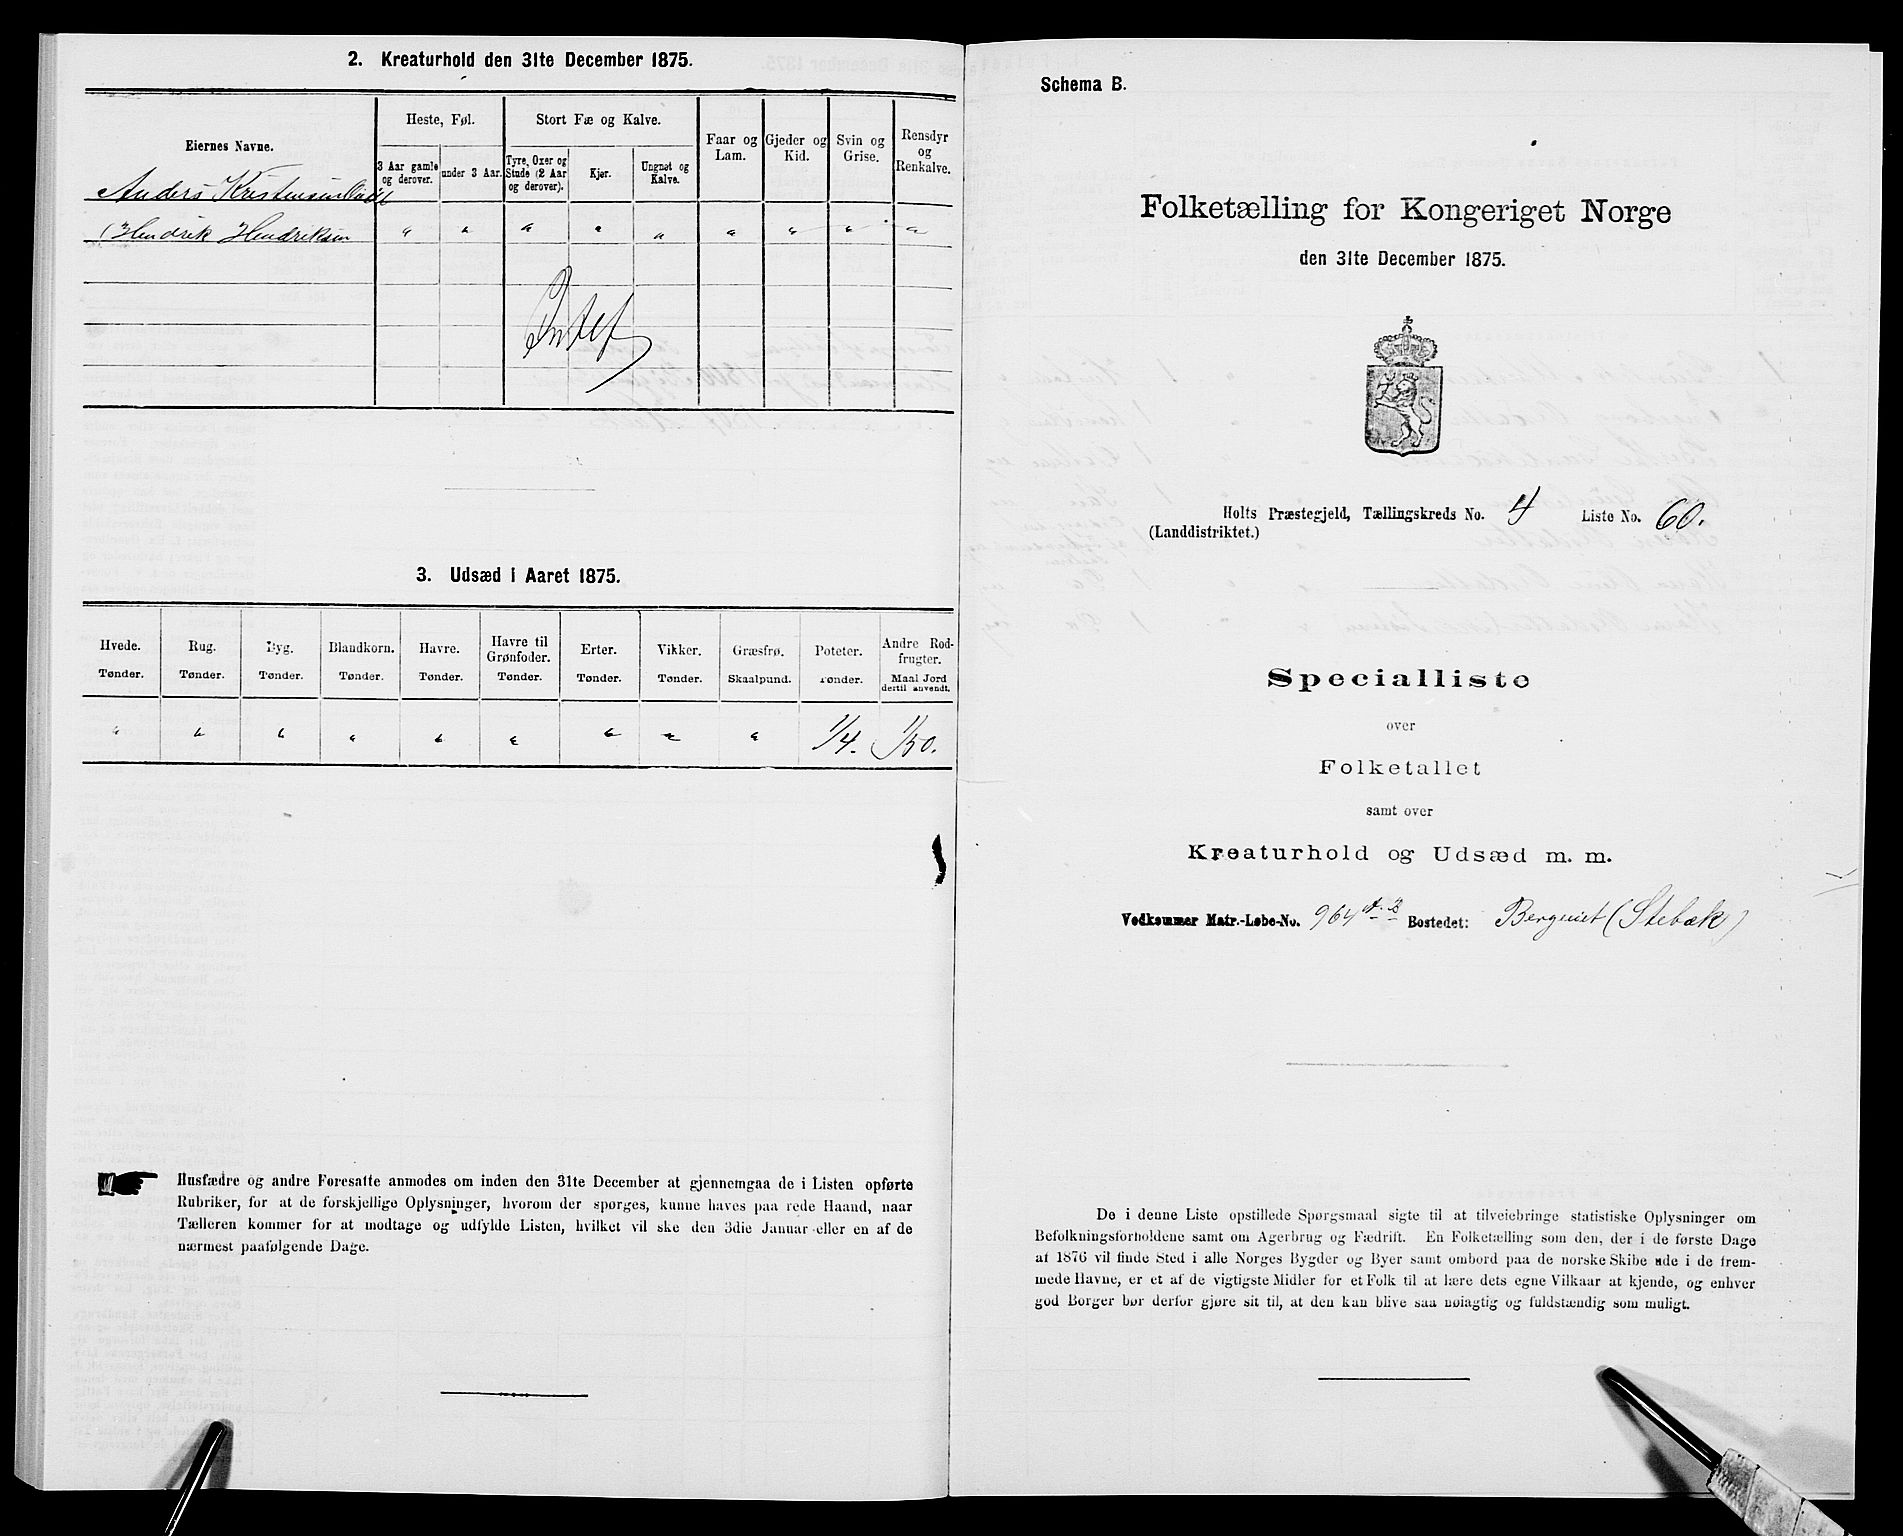 2. Kreaturhold den 31te December 1875.
Eiernes Navne.
Heste, Føl.
Stort Fæ og Kalve.
3 Aar gamle og derover.
under 3 Aar.
Tyre, Oxer og Stude (2 Aar og derover).
Kjør.
Ungnøt og Kalve.
Faar og Lam.
Gjeder og Kid.
Svin og Grise.
Rensdyr og Renkalve.
Anders Kristensen
Hendrik Hendriksen " " " " " " " " "
Intet
3. Udsæd i Aaret 1875.
Hvede. Rug. Byg. Blandkorn. Havre. Havre til Grønfoder. Erter. Vikker. Græsfrø. Poteter. Andre Rodfrugter.
Tønder. Tønder. Tønder. Tønder. Tønder. Tønder. Tønder. Tønder. Skaalpund. Tønder. Maal Jord dertil anvendt.
" " " " " " " " " 1/4. 1/50.
Husfædre og andre Foresatte anmodes om inden den 31te December at gjennemgaa de i Listen opførte
Rubriker, for at de forskjellige Oplysninger, hvorom der spørges, kunne haves paa rede Haand, naar
Tælleren kommer for at modtage og udfylde Listen, hvilket vil ske den 3die Januar eller en af de
nærmest paafølgende Dage.
Schema B.
Folketælling for Kongeriget Norge
den 31te December 1875.
Holts Præstegjeld, Tællingskreds No. 4 Liste No. 60.
(Landdistriktet.)
Specialliste
over
Folketallet
samt over
Kreaturhold og Udsæd m. m.
Vedkommer Matr.-Løbe-No. 964 Bostedet: (Stebæk)
De i denne Liste opstillede Spørgsmaal sigte til at tilveiebringe statistiske Oplysninger om
Befolkningsforholdene samt om Agerbrug og Fædrift. En Folketælling som den, der i de første Dage
af 1876 vil finde Sted i alle Norges Bygder og Byer samt ombord paa de norske Skibe ude i de frem-
mede Havne, er et af de vigtigste Midler for et Folk til at lære dets egne Vilkaar at kjende, og enhver
god Borger bør derfor gjøre sit til, at den kan blive saa nøiagtig og fuldstændig som muligt.